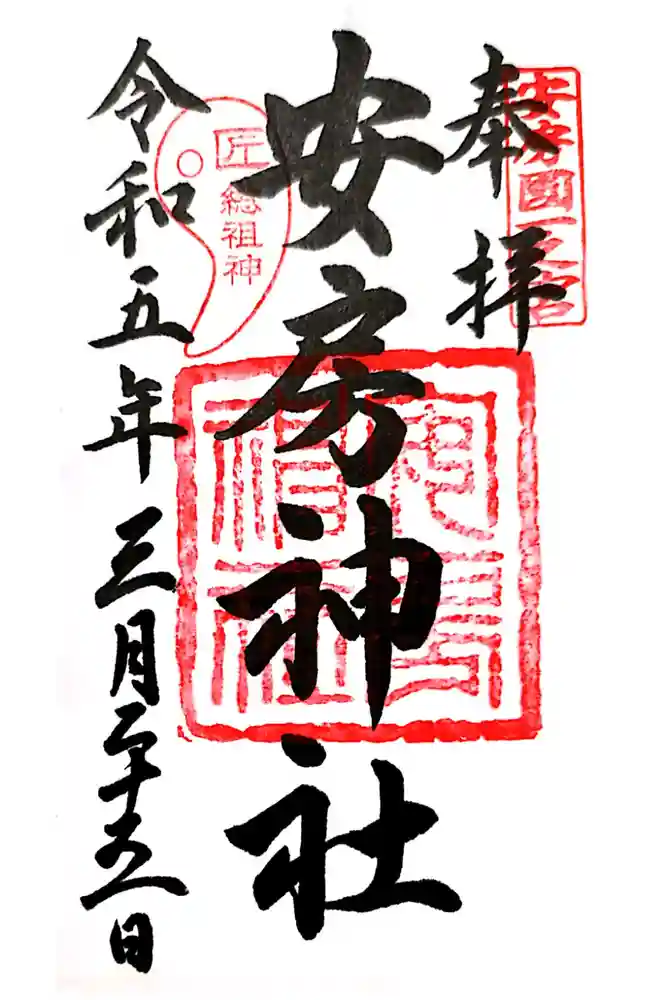 奉拝
安房國一之宮
安房神社
匠
総祖神
安房神社
令和五年三月二十五日